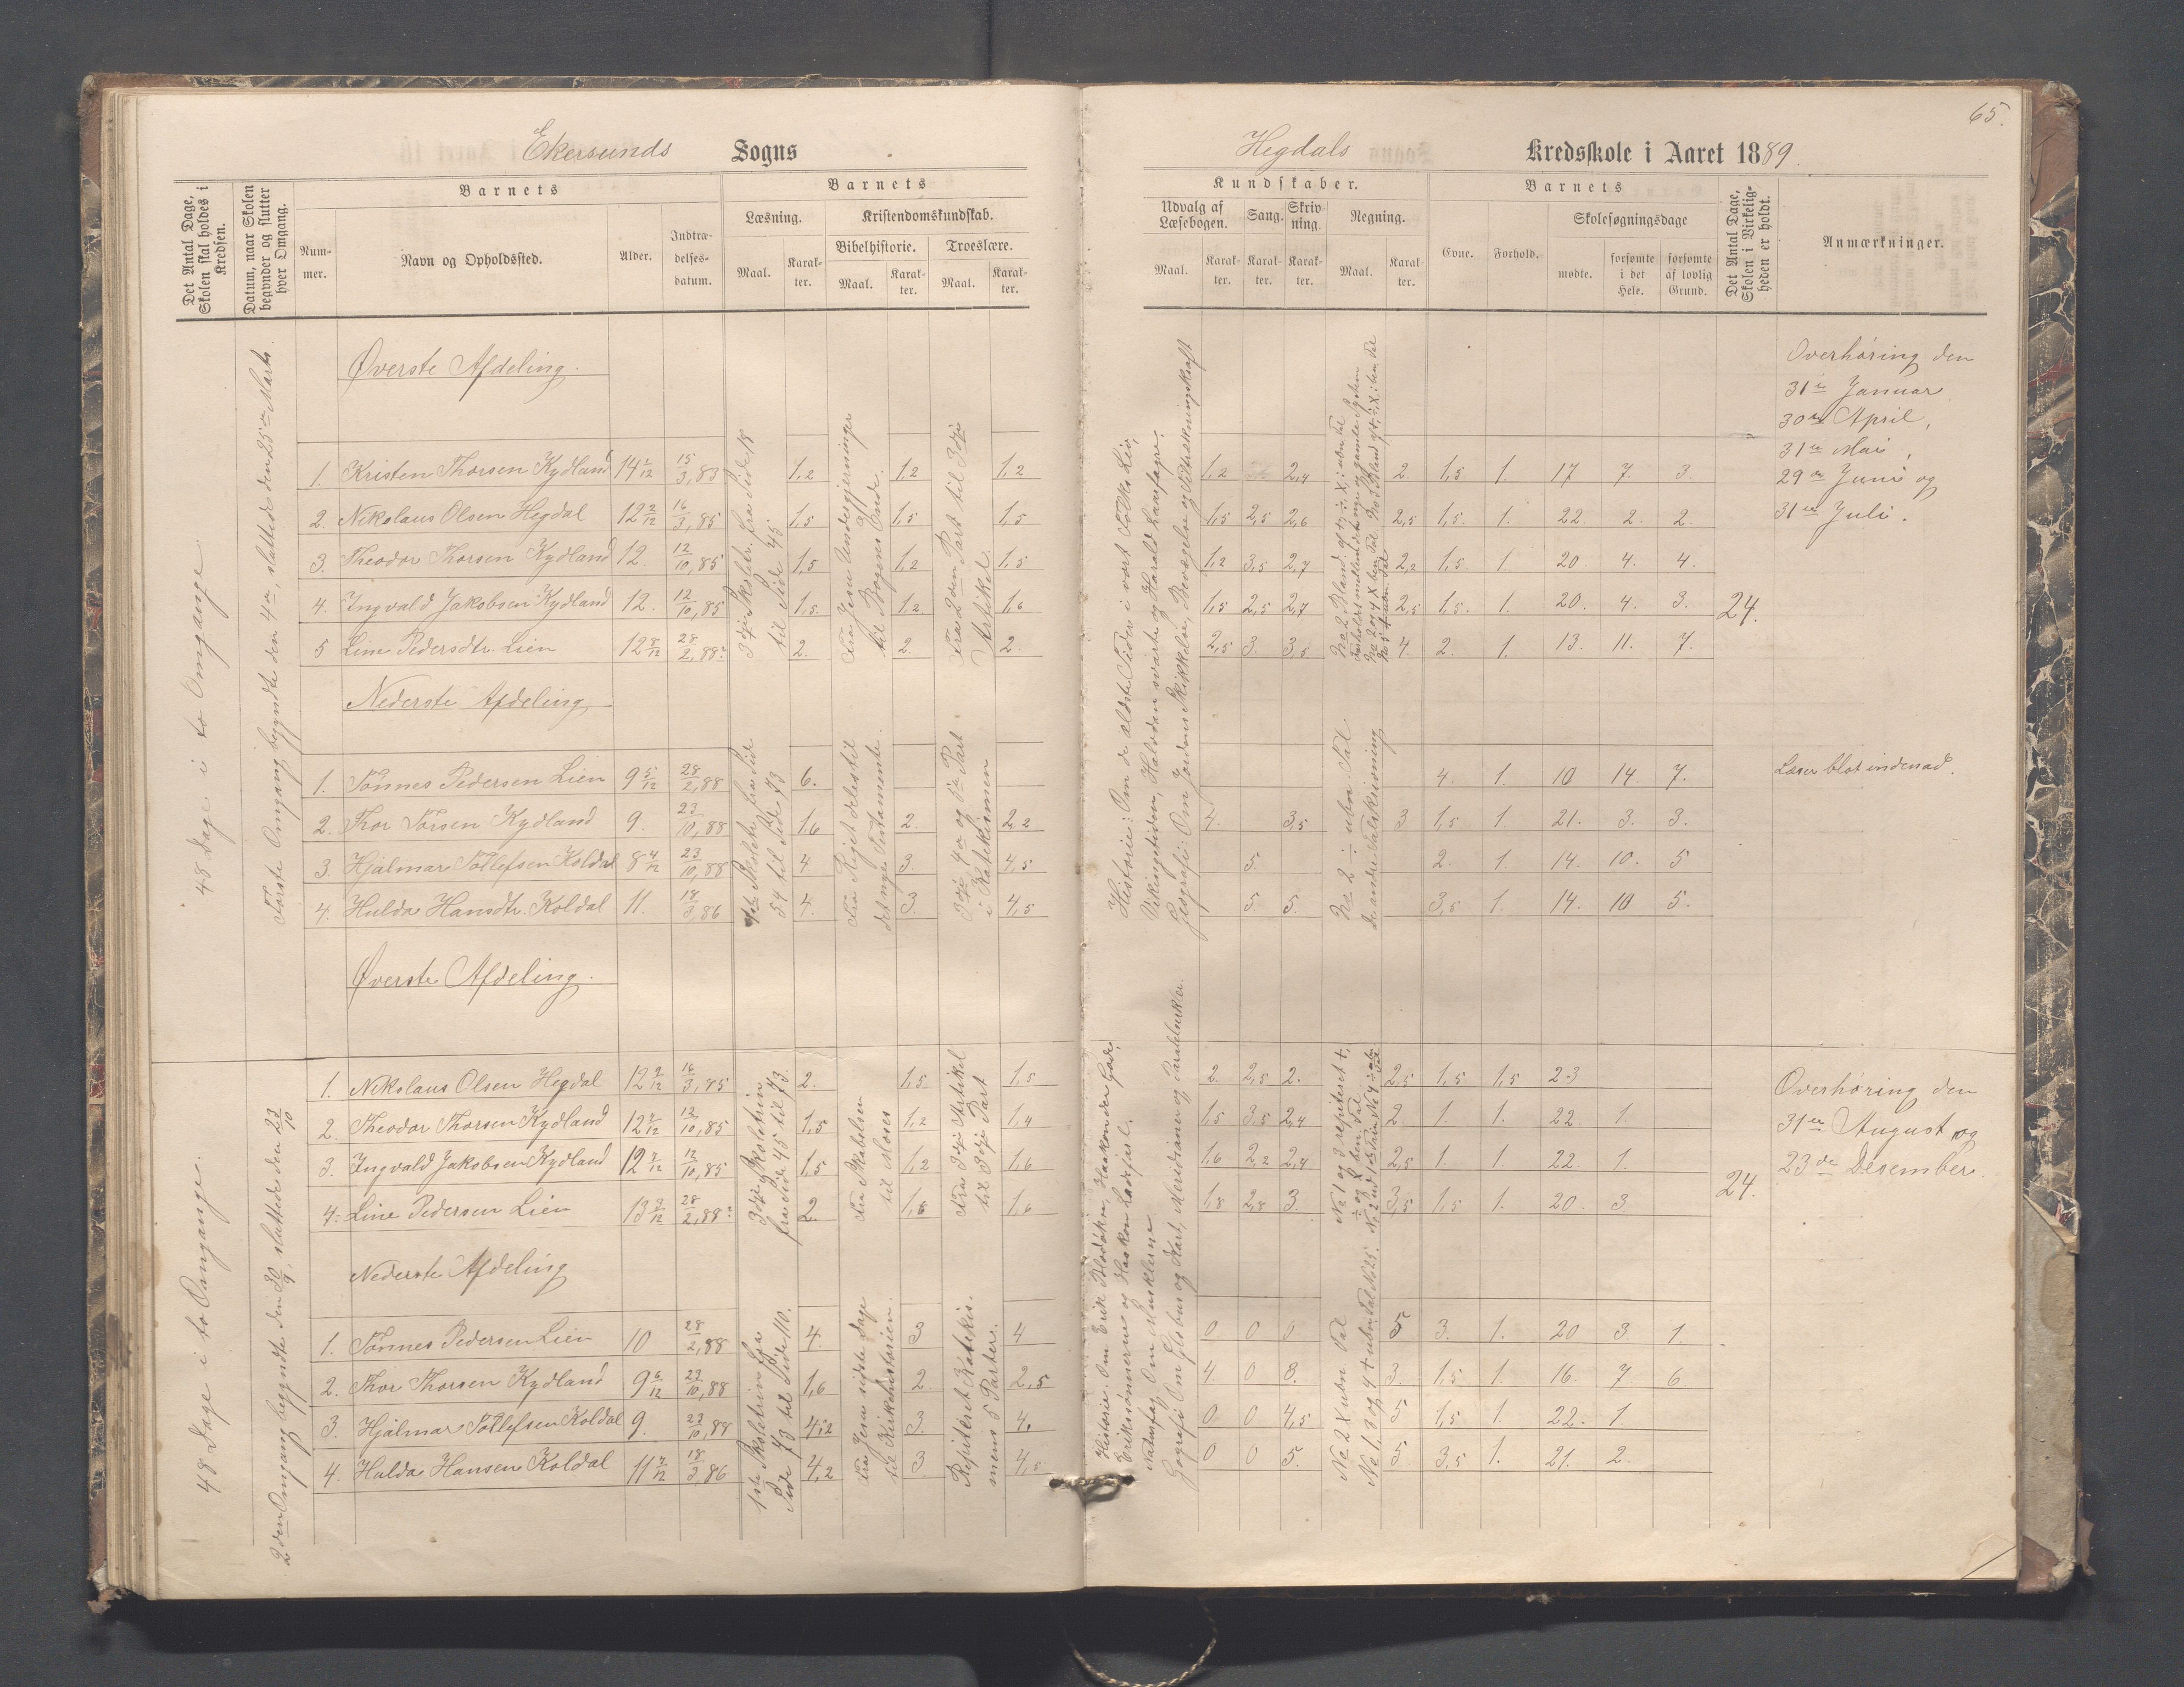 65.
Ekersunds Sogns
Hegdals Kredsskole i Aaret 1889.
Det Antal Dage, Skolen skal holdes i Kredsen.
Datum, naar Skolen begynder og slutter hver Omgang.
Barnets
Num-mer.
Navn og Opholdssted.
Alder.
Indtræ-delses-datum.
Barnets
Læsning.
Maal.
Karak-ter.
Kristendomskundskab.
Bibelhistorie.
Maal.
Karak-ter.
Troeslære.
Maal.
Karak-ter.
Kundskaber.
Udvalg af Læsebogen.
Maal.
Karak-ter.
Sang.
Karak-ter.
Skriv-ning.
Karak-ter.
Regning.
Maal.
Karak-ter.
Barnets
Evne.
Forhold.
Skolesøgningsdage
mødte.
forsømte i det Hele.
forsømte af lovlig Grund.
Det Antal Dage, Skolen i Virkelig-heden er holdt.
Anmærkninger.
48 Dage i to Omgange.
Første Omgang begyndte den 4de, sluttede den 25de Marts.
Øverste Afdeling.
1. Kristen Thorsen Kydland 14 2/12 15/3,83 1,2 1,2 1,2 1,2 2,4 2 1,5 1. 17 7. 3.
2. Nikolaus Olsen Hegdal 12 2/12 16/3,85 1,5 1,5 1,5 1,5 2,5 2,6 2,5 1,5. 1. 22. 2. 2.
3. Theodor Thorsen Kydland 12. 12/10,85 1,5 1,2 1,5 1,2 3,5 2,7 2,2 1,5. 1. 20 4. 4.
4. Ingvald Jakobsen Kydland 12. 12/10,85 1,5. 1,2 1,6 1,5 2,5 2,7 2,5 1,5. 1. 20. 4. 3.
5 Line Pedersdtr. Lien 12 8/12 28/2,88. 2. 2. 2. 2,5 3. 3,5 4. 2. 1. 13. 11. 7.
24.
3dje Skoletr. fra Side 18 til Side 45
Fra Jesu Undergjerninger til Bogens Ende.
Fra 2den Part til 3dje Artikel.
Overhøring den
31te Januar
30te April,
31te Mai,
29de Juni og
31te Juli.
Nederste Afdeling
1. Tønnes Pedersen Lien 9 5/12 28/2,88 6. 4. 1. 10 14. 7. Læser blot indenad.
2. Thor Torsen Kydland 9. 23/10,88 1,6 2. 2,2 4. 3,5 3 1,5 1. 21. 3. 3.
3. Hjalmar Tollefsen Koldal 8 4/12 23/10,88 4 3. 4,5 5. 2. 1. 14. 10. 5
4. Hulda Hansdtr. Koldal 11. 18/3,86 4. 3. 4,5 5. 5. 3,5 1. 14. 10 5.
1ste Skoletr. fra Side 54 til Side 73
Fra Riget deles til det nye Testamente.
3dje 4de og 5te Part i Katekismen
Historie: Om de ældste Tider i vort Folks Liv,
Vikingetiden, Halvdan svarte og Harald Haarfagre.
Geografi: Om Jordens Skikkelse, Bevægelse og Tiltrækningskraft
No 2 ÷ ubn. Tal
de andre Talskrivning
48 Dage i to Omgange.
2den Omgang begyndte den 30/9, sluttede den 23/10
Øverste Afdeling.
1. Nikolaus Olsen Hegdal 12 9/12 16/3,85 2. 1,5. 1,5 2. 2,5 2. 2,5 1,5 1,5 23
2. Theodor Thorsen Kydland 12 7/12 12/10,85 1,5 1,2 1,4 1,5 3,5 2,4 2. 1. 1. 22 1.
3. Ingvald Jakobsen Kydland 12 7/12 12/10,85 1,5 1,2 1,6 1,6 2,2 2,4 2,5 1. 1. 22. 1.
4. Line Pedersen Lien 13 3/12 28/2,88. 2 1,6 1,6 1,8 2,8 3. 3,5 1,5 1. 20. 3.
24.
3dje Skoletrin fra Side 45 til 73.
Fra Skabelsen til Moses
Fra 3dje Artikel til 3dje Part
Overhøring den
31te August og
23de Desember.
Nederste Afdeling
1. Tønnes Pedersen Lien 10 28/2,88 4. 3 4 0 0 0 5 3. 1. 20 3. 1.
2. Thor Thorsen Kydland 9 6/12 23/10,88 1,6 2. 2,5 4. 0 3. 3. 1,5 1. 16. 7 6
3. Hjalmar Tollefsen Koldal 9. 23/10,88 4,2 3. 4. 0 0 4,5 5 1,5 1. 22. 1.
4. Hulda Hansen Koldal 11 7/12 18/3,86 4,2 3 4,5 0 0 5. 5. 3,5 1. 21. 2.
1ste Skoletrin fra Side 73 til Side 110.
Fra Jesu sidste Dage til Kirkehistorien.
Repiteret Katekis-mens 5 Parter.
Historie. Om Erik Blodøkse, Haakon den Gode,
Eriksønnerne og Haakon Ladejarl.
Naturfag Om Musklerne
Geografi Om Globus og Kart, Meridianer og Paralelsirkler.
No 2 X ubn. Tal
No 1, 3 og 4 + ubn. Tal